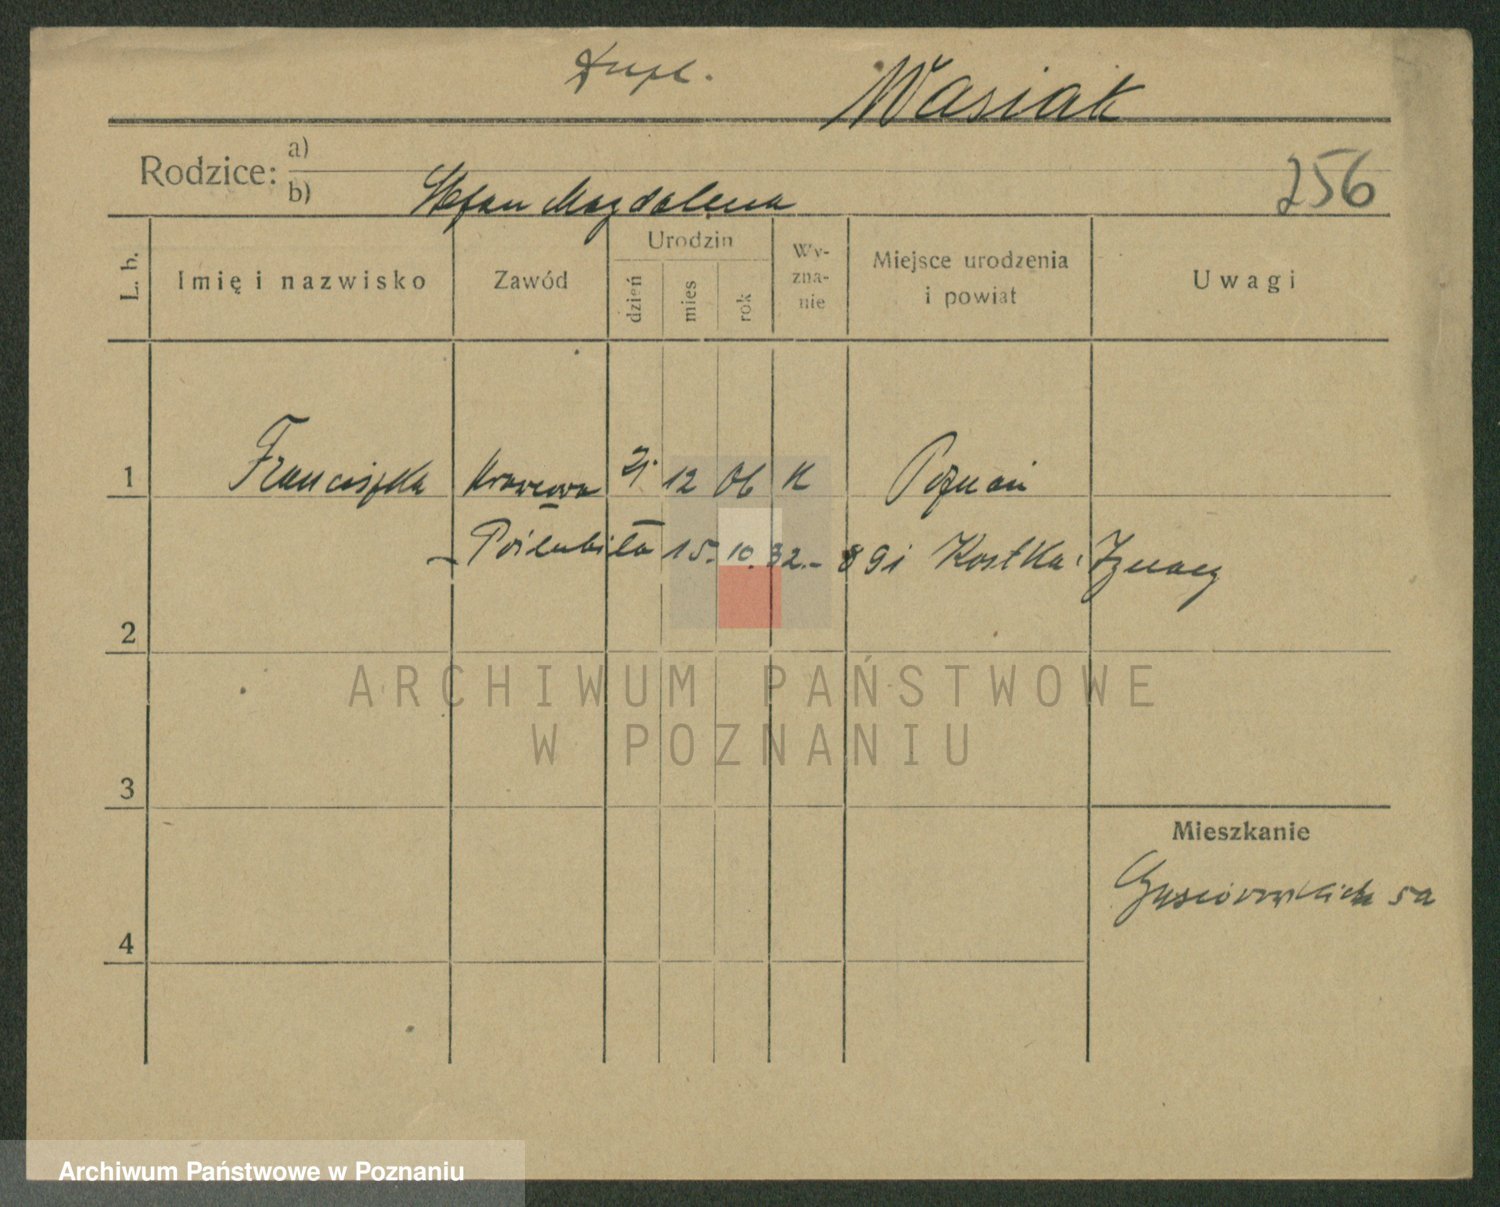 Dupl.
Wasiak
Rodzice: a)
b) Stefan Magdalena
256
L. b.
Imię i nazwisko
Zawód
Urodzin
dzień
mies
rok
Wy-
zna-
nie
Miejsce urodzenia
i powiat
Uwagi
1 Franciszka Krawcowa 12 06 K Poznań
– Poślubiła 15. 10. 32.– Kostka Ignacy
2
ARCHIWUM PAŃSTWOWE
W POZNANIU
3
Mieszkanie
Gąsiorowskich 5a
4
Archiwum Państwowe w Poznaniu